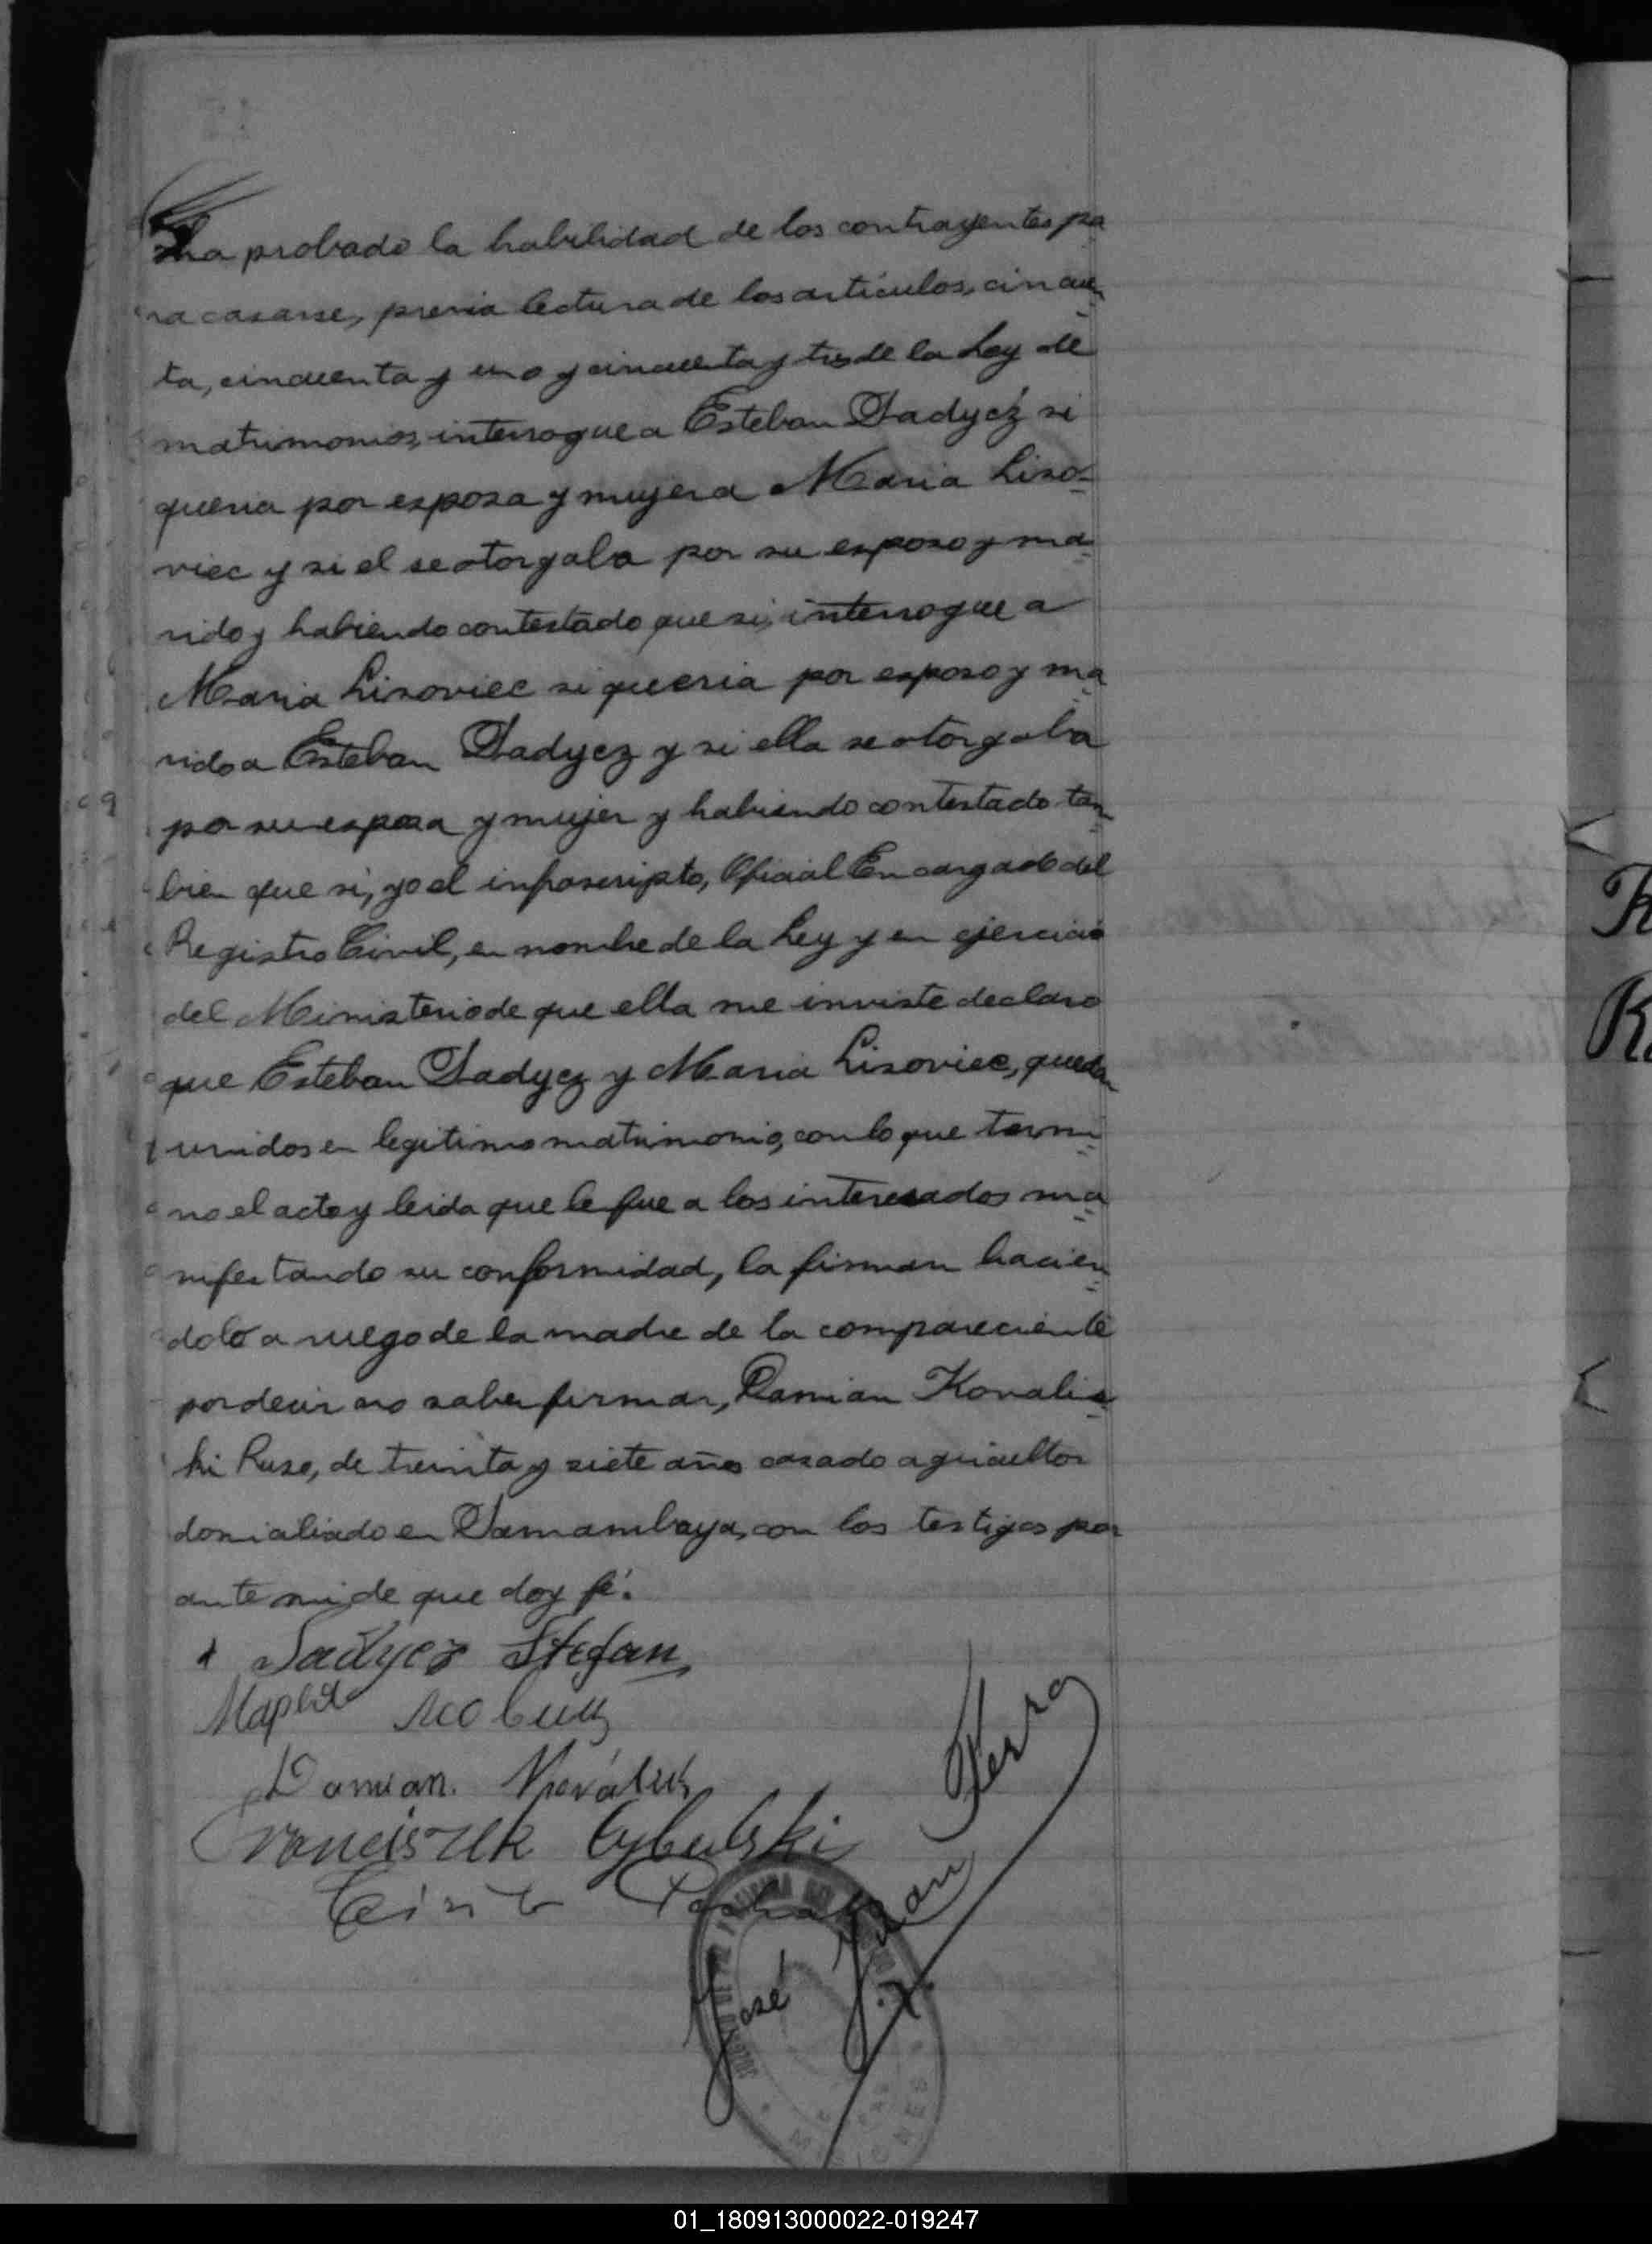 ha probado la habilidad de los contrayentes pa
ra casarse, previa lectura de los articulos, cincuen
ta, cincuenta y uno y cincuenta y tres de la Ley de
matrimonios, interrogue a Esteban Sadycz si
queria por esposa y mujer a Maria Liso-
viec y si el se otorgaba por su esposo y ma
rido y habiendo contestado que si, interrogue a
Maria Lisoviec si queria por esposo y ma
rido a Esteban Sadycz y si ella se otorgaba
por su esposa y mujer y habiendo contestado tam
bien que si, yo el infrascripto, Oficial Encargado del
Registro Civil, en nombre de la Ley y en ejercicio
del Ministerio de que ella me inviste declaro
que Esteban Sadycz y Maria Lisoviec, quedan
unidos en legitimo matrimonio, con lo que termi
no el acto y leida que le fue a los interesados ma
nifestando su conformidad, la firman hacien
dolo a ruego de la madre de la compareciente
por decir no saber firmar, Damian Kovalis
ki Ruso, de treinta y siete años casado agricultor
domiciliado en Samambaya, con los testigos por
ante mi de que doy fé.
Sadycz Stefan
Damian
Franciszek Cybulski
José Juan